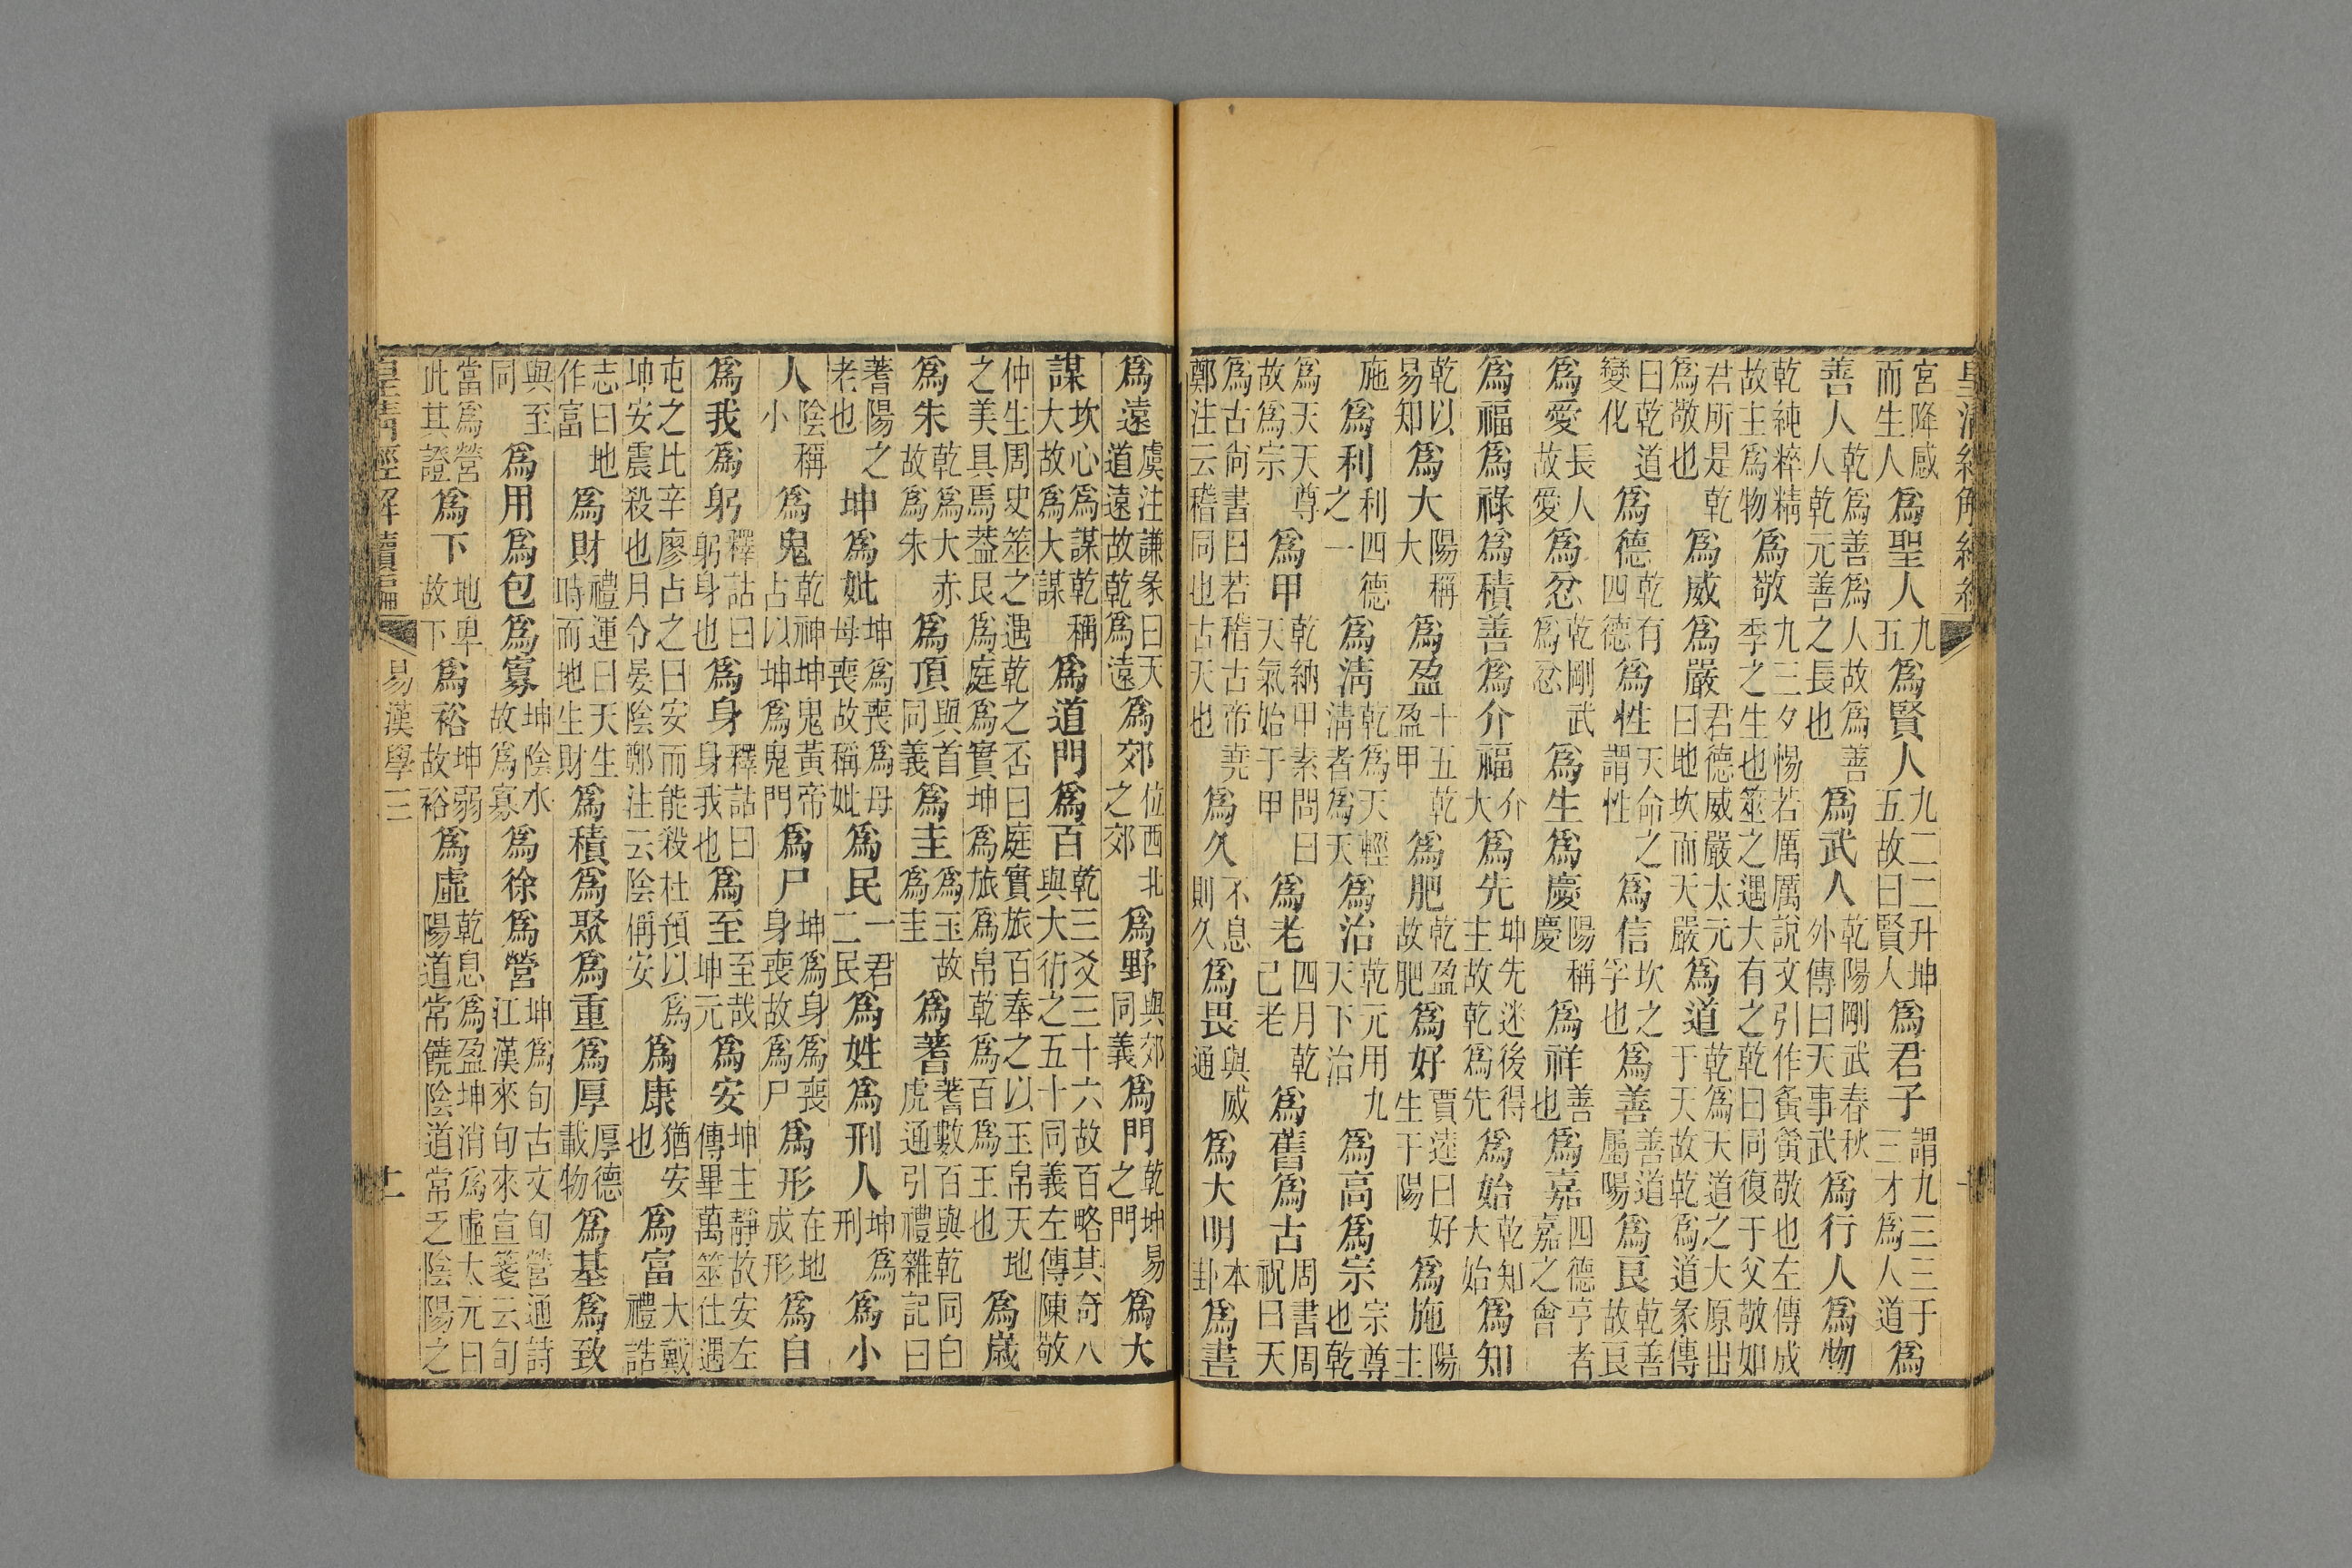 皇清經解續編
宮降感而生人爲聖人九五爲賢人九二二升坤五故曰賢人爲君子謂九三三于三才爲人道爲
善人乾爲善爲人故爲善人乾元善之長也爲武人乾陽剛武春秋外傳曰天事武爲行人爲物
乾純粹精故主爲物爲敬九三夕惕若厲厲說文引作夤夤敬也左傳成季之生也筮之遇大有之乾曰同復于父敬如
君所是乾爲敬也爲威爲嚴君德威嚴太元曰地坎而天嚴爲道乾爲天道之大原出于天故乾爲道彖傳
曰乾道變化爲德乾有四德爲性天命之謂性爲信坎之孚也爲善善道屬陽爲良乾善故良
爲愛長人故愛爲忿乾剛武爲忿爲生爲慶陽稱慶爲祥善也爲嘉四德亨者嘉之會
爲福爲祿爲積善爲介福介大爲先坤先迷後得主故乾爲先爲始乾知大始爲知
乾以易知爲大陽稱大爲盈十五乾盈甲爲肥乾盈故肥爲好賈逵曰好生于陽爲施陽主
施爲利利四德之一爲淸乾爲天輕淸者爲天爲治乾元用九天下治爲高爲宗宗尊也乾
爲天天尊故爲宗爲甲乾納甲素問曰天氣始于甲爲老四月乾己老爲舊爲古周書周祝曰天
爲古尙書曰若稽古帝堯鄭注云稽同也古天也爲久不息則久爲畏與威通爲大明本卦爲晝
爲遠虞注謙彖曰天道遠故乾爲遠爲郊位西北之郊爲野與郊同義爲門乾坤易之門爲大
謀坎心爲謀乾稱大故爲大謀爲道門爲百乾三爻三十六故百略其奇八與大衍之五十同義左傳陳敬
仲生周史筮之遇乾之否曰庭實旅百奉之以玉帛天地之美具焉蓋艮爲庭爲實坤爲旅爲帛乾爲百爲王也爲歲
爲朱乾爲大赤故爲朱爲頂與首同義爲圭爲玉故爲圭爲蓍蓍數百與乾同白虎通引禮雜記曰
蓍陽之老也坤爲妣坤爲喪爲母母喪故稱妣爲民一君二民爲姓爲刑人坤爲刑爲小
人陰稱小爲鬼乾神坤鬼黃帝占以坤爲鬼門爲尸坤爲身爲喪身喪故爲尸爲形在地成形爲自
爲我爲躬釋詁曰躬身也爲身釋詁曰身我也爲至至哉坤元爲安坤主靜故安左傳畢萬筮仕遇
屯之比辛廖占之曰安而能殺杜預以爲坤安震殺也月令晏陰鄭注云陰偁安爲康猶安也爲富大戴禮誥
志曰地作富爲財禮運曰天生時而地生財爲積爲聚爲重爲厚厚德載物爲基爲致
與至同爲用爲包爲寡坤陰水故爲寡爲徐爲營坤爲旬古文旬營通詩江漢來旬來宣箋云旬
當爲營此其證爲下地卑故下爲裕坤弱故裕爲虛乾息爲盈坤消爲虛太元曰陽道常饒陰道常乏陰陽之
皇淸經解續編 易漢學三